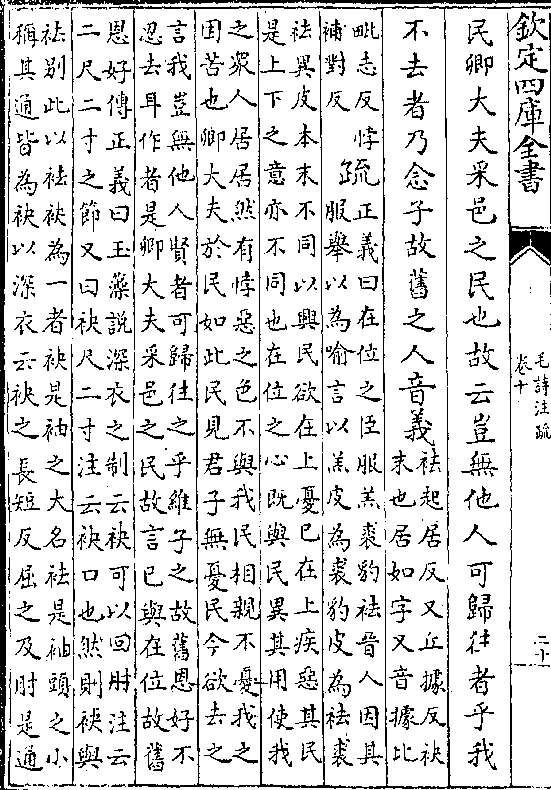 欽定四庫全書
毛詩注疏
卷十
二十
民卿大夫采邑之民也故云豈無他人可歸往者乎我
不去者乃念子故舊之人音義
袪起居反又丘據反袂
末也居如字又音據比
毗志反悖
補對反
疏
正義曰在位之臣服羔裘豹袪晉人因其
服舉以為喻言以羔皮為裘豹皮為袪裘
袪異皮本末不同以興民欲在上憂已在上疾惡其民
是上下之意亦不同也在位之心既與民異其用使我
之衆人居居然有悖惡之色不與我民相親不憂我之
困苦也卿大夫於民如此民見君子無憂民今欲去之
言我豈無他人賢者可歸往之乎維子之故舊恩好不
忍去耳作者是卿大夫采邑之民故言已與在位故舊
恩好傳正義曰玉藻說深衣之制云袂可以回肘注云
二尺二寸之節又曰袂尺二寸注云袂口也然則袂與
袪别此以袪袂為一者袂是袖之大名袪是袖頭之小
稱其通皆為袂以深衣云袂之長短反屈之及肘是通